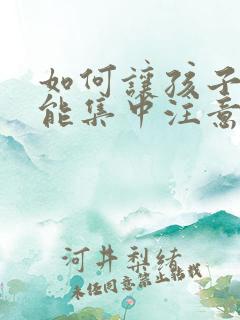 如何讓孩子
能集中注意
河井梨緒
未经同意禁止转载